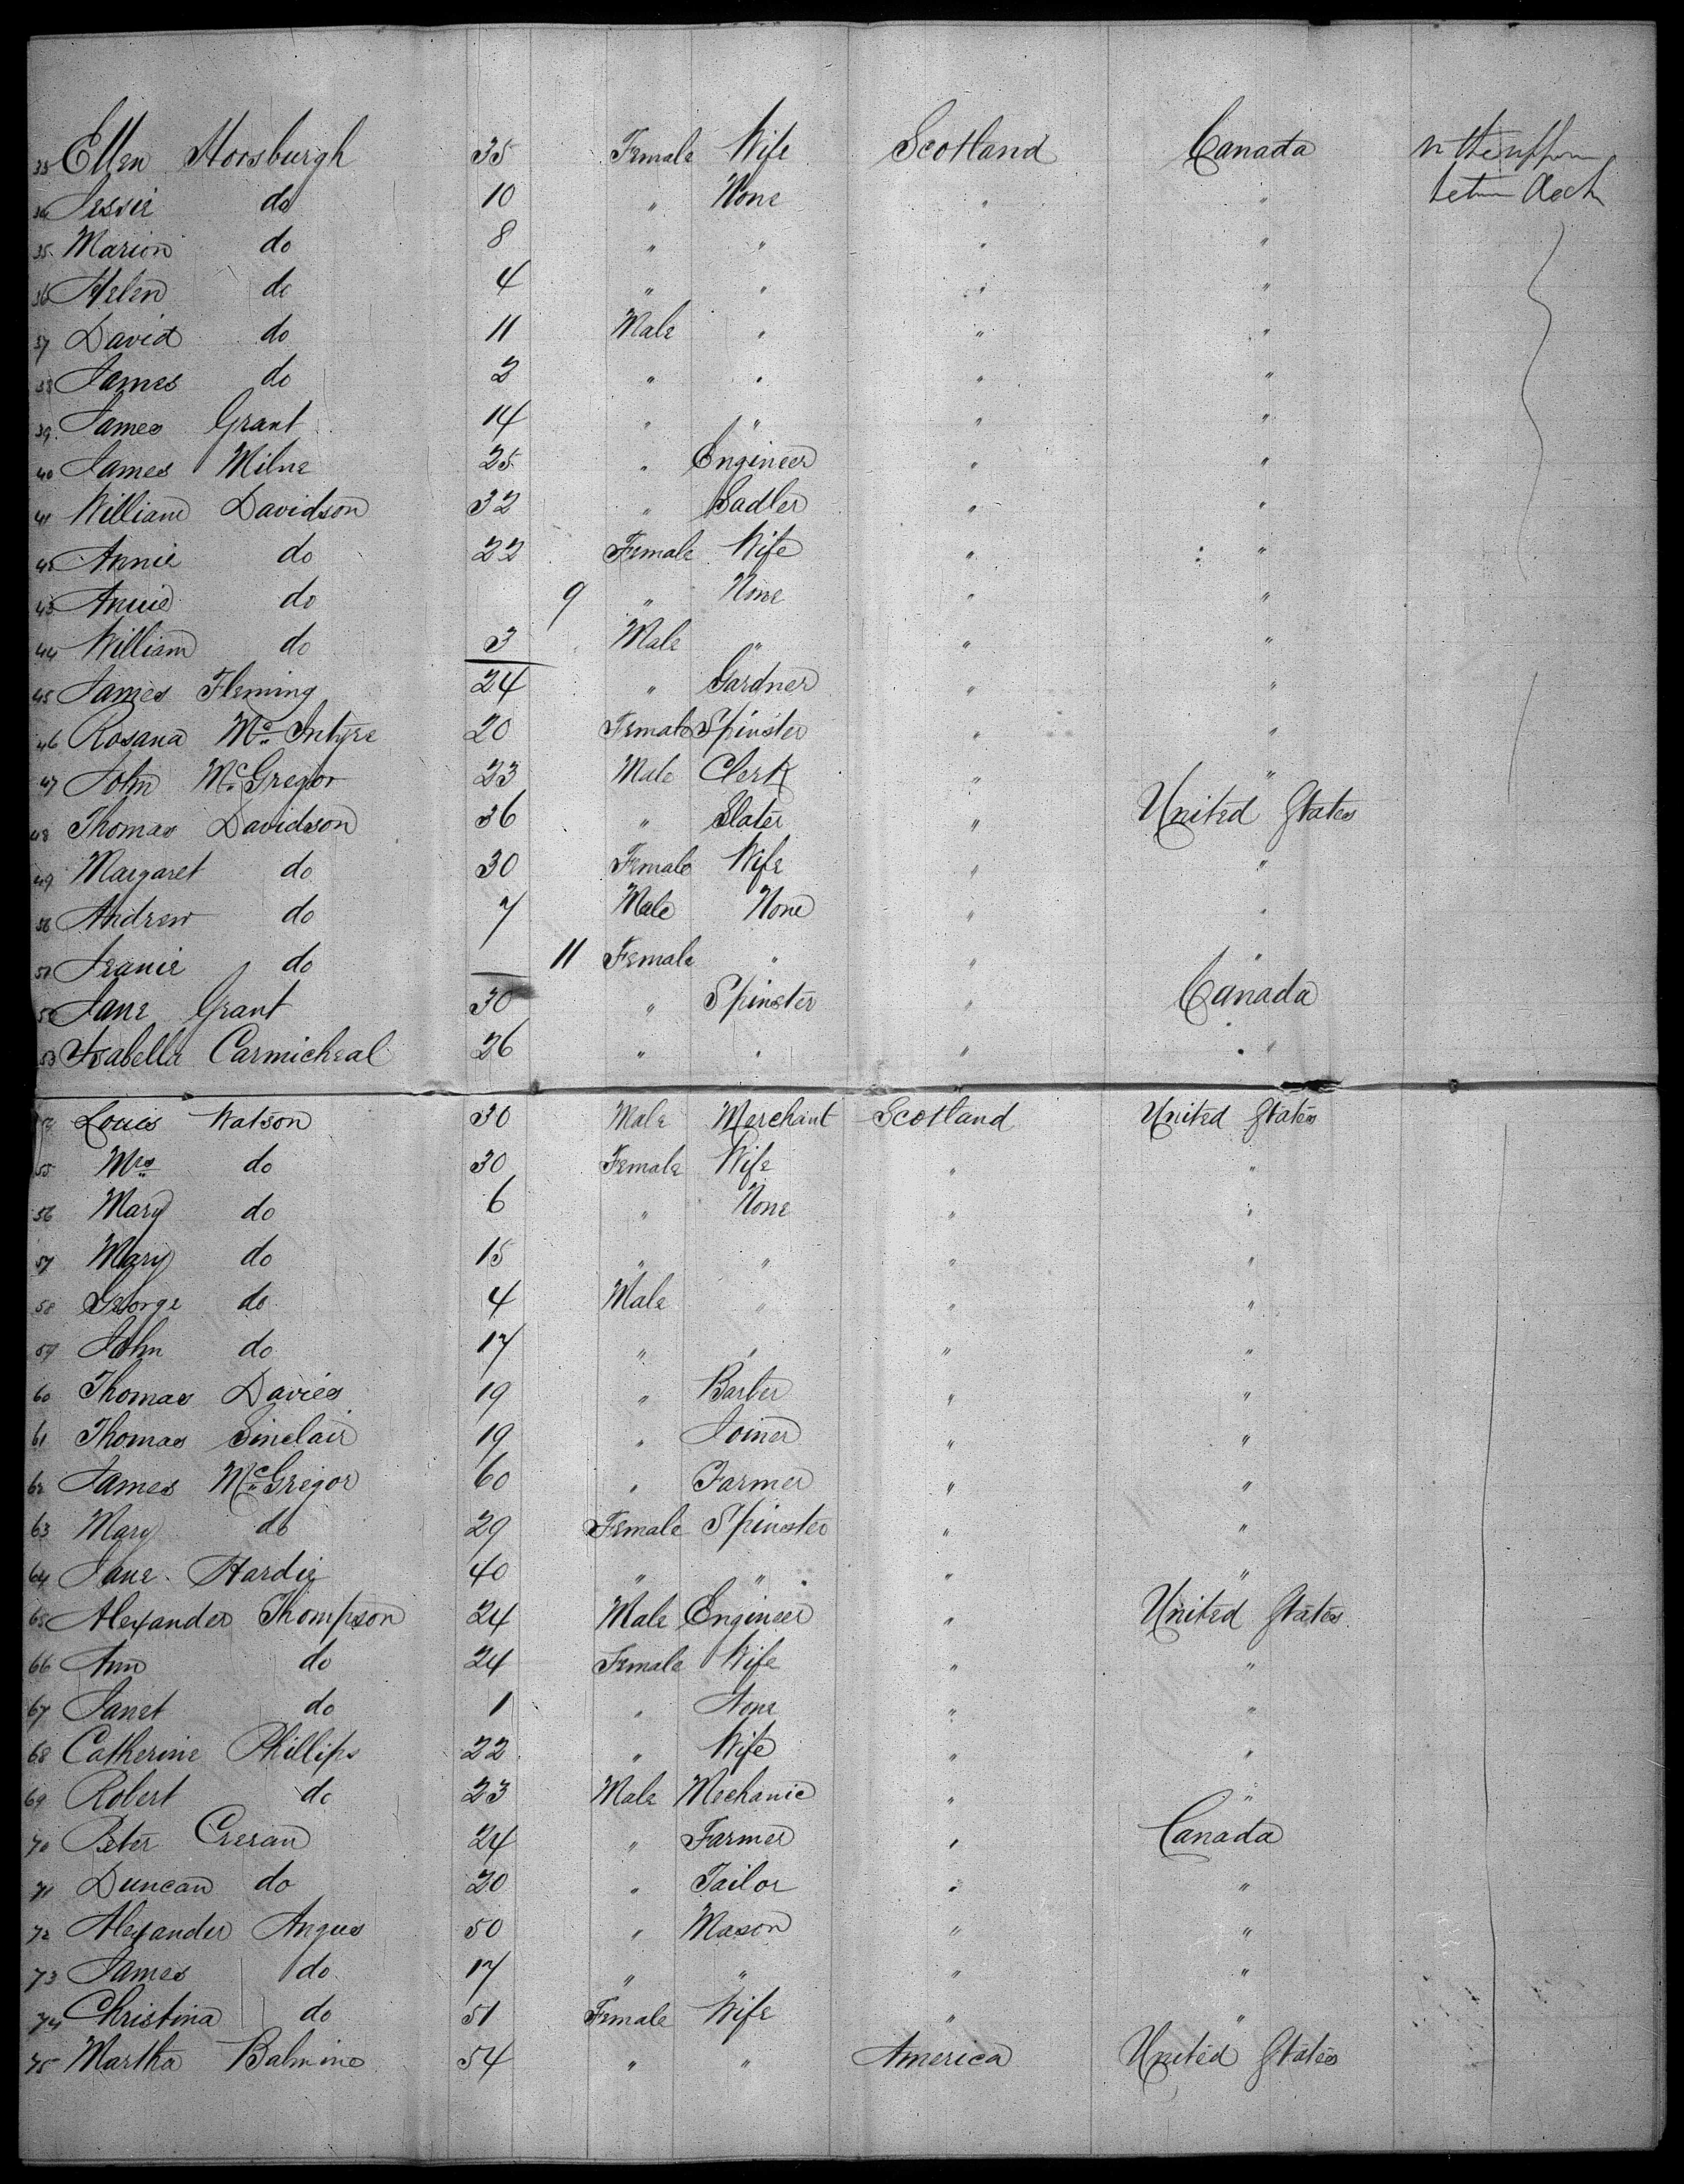 33 Ellen Horsburgh 35 Female Wife Scotland Canada in the upper
34 Jessie do 10 " None " " between deck
35 Marion do 8 " " " "
36 Helen do 4 " " " "
37 David do 11 Male " " "
38 James do 2 " " " "
39 James Grant 14 " " " "
40 James Milne 25 " Engineer " "
41 William Davidson 32 " Sadler " "
42 Annie do 22 Female Wife " "
43 Annie do 9 " None " "
44 William do 3 Male " " "
45 James Fleming 24 " Gardner " "
46 Rosana McIntyre 20 Female Spinster " "
47 John McGregor 23 Male Clerk " "
48 Thomas Davidson 36 " Slater " United States
49 Margaret do 30 Female Wife " "
50 Andrew do 7 Male None " "
51 Jeanie do 11 Female " " "
52 Jane Grant 30 " Spinster " Canada
53 Isabella Carmicheal 26 " " " "
54 Louis Watson 30 Male Merchant Scotland United States
55 Mrs do 30 Female Wife " "
56 Mary do 6 " None " "
57 Mary do 15 " " " "
58 George do 4 Male " " "
59 John do 17 " " " "
60 Thomas Davies 19 " Barber " "
61 Thomas Sinclair 19 " Joiner " "
62 James McGregor 60 " Farmer " "
63 Mary do 29 Female Spinster " "
64 Jane Hardie 40 " " " "
65 Alexander Thompson 24 Male Engineer " United States
66 Ann do 24 Female Wife " "
67 Janet do 1 " None " "
68 Catherine Phillips 22 " Wife " "
69 Robert do 23 Male Mechanic " "
70 Peter Creran 24 " Farmer " Canada
71 Duncan do 20 " Tailor " "
72 Alexander Angus 50 " Mason " "
73 James do 17 " " " "
74 Christina do 51 Female Wife " "
75 Martha Balmino 54 " " America United States